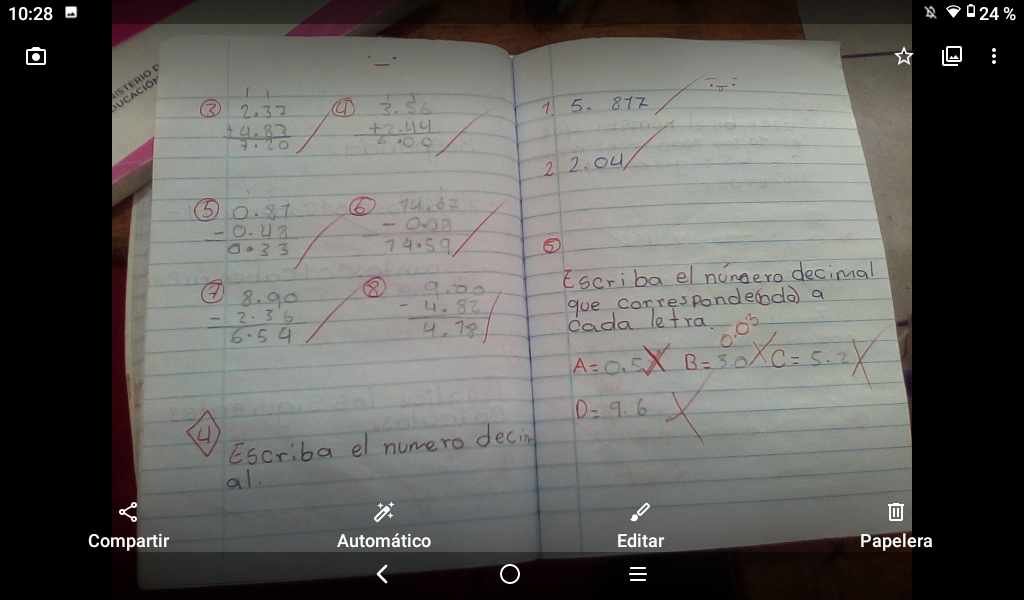 10:28
24 %
MINISTERIO D
EDUCACIÓN
③ 2.37 ④ 3.56
+4.83 +2.44
7.20 6.00
⑤ 0.87 ⑥ 14.67
-0.43 - 0.08
0.33 14.59
⑦ 8.90 ⑧ 9.00
- 2.36 - 4.82
6.54 4.18
4 Escriba el numero decim
al.
1. 5. 817
2 2.04
⑤
Escriba el número decimal
que corresponde(ndo) a
cada letra.
0.03
A= 0.5 B= 30 C= 5.2
D= 9.6
Compartir
Automático
Editar
Papelera